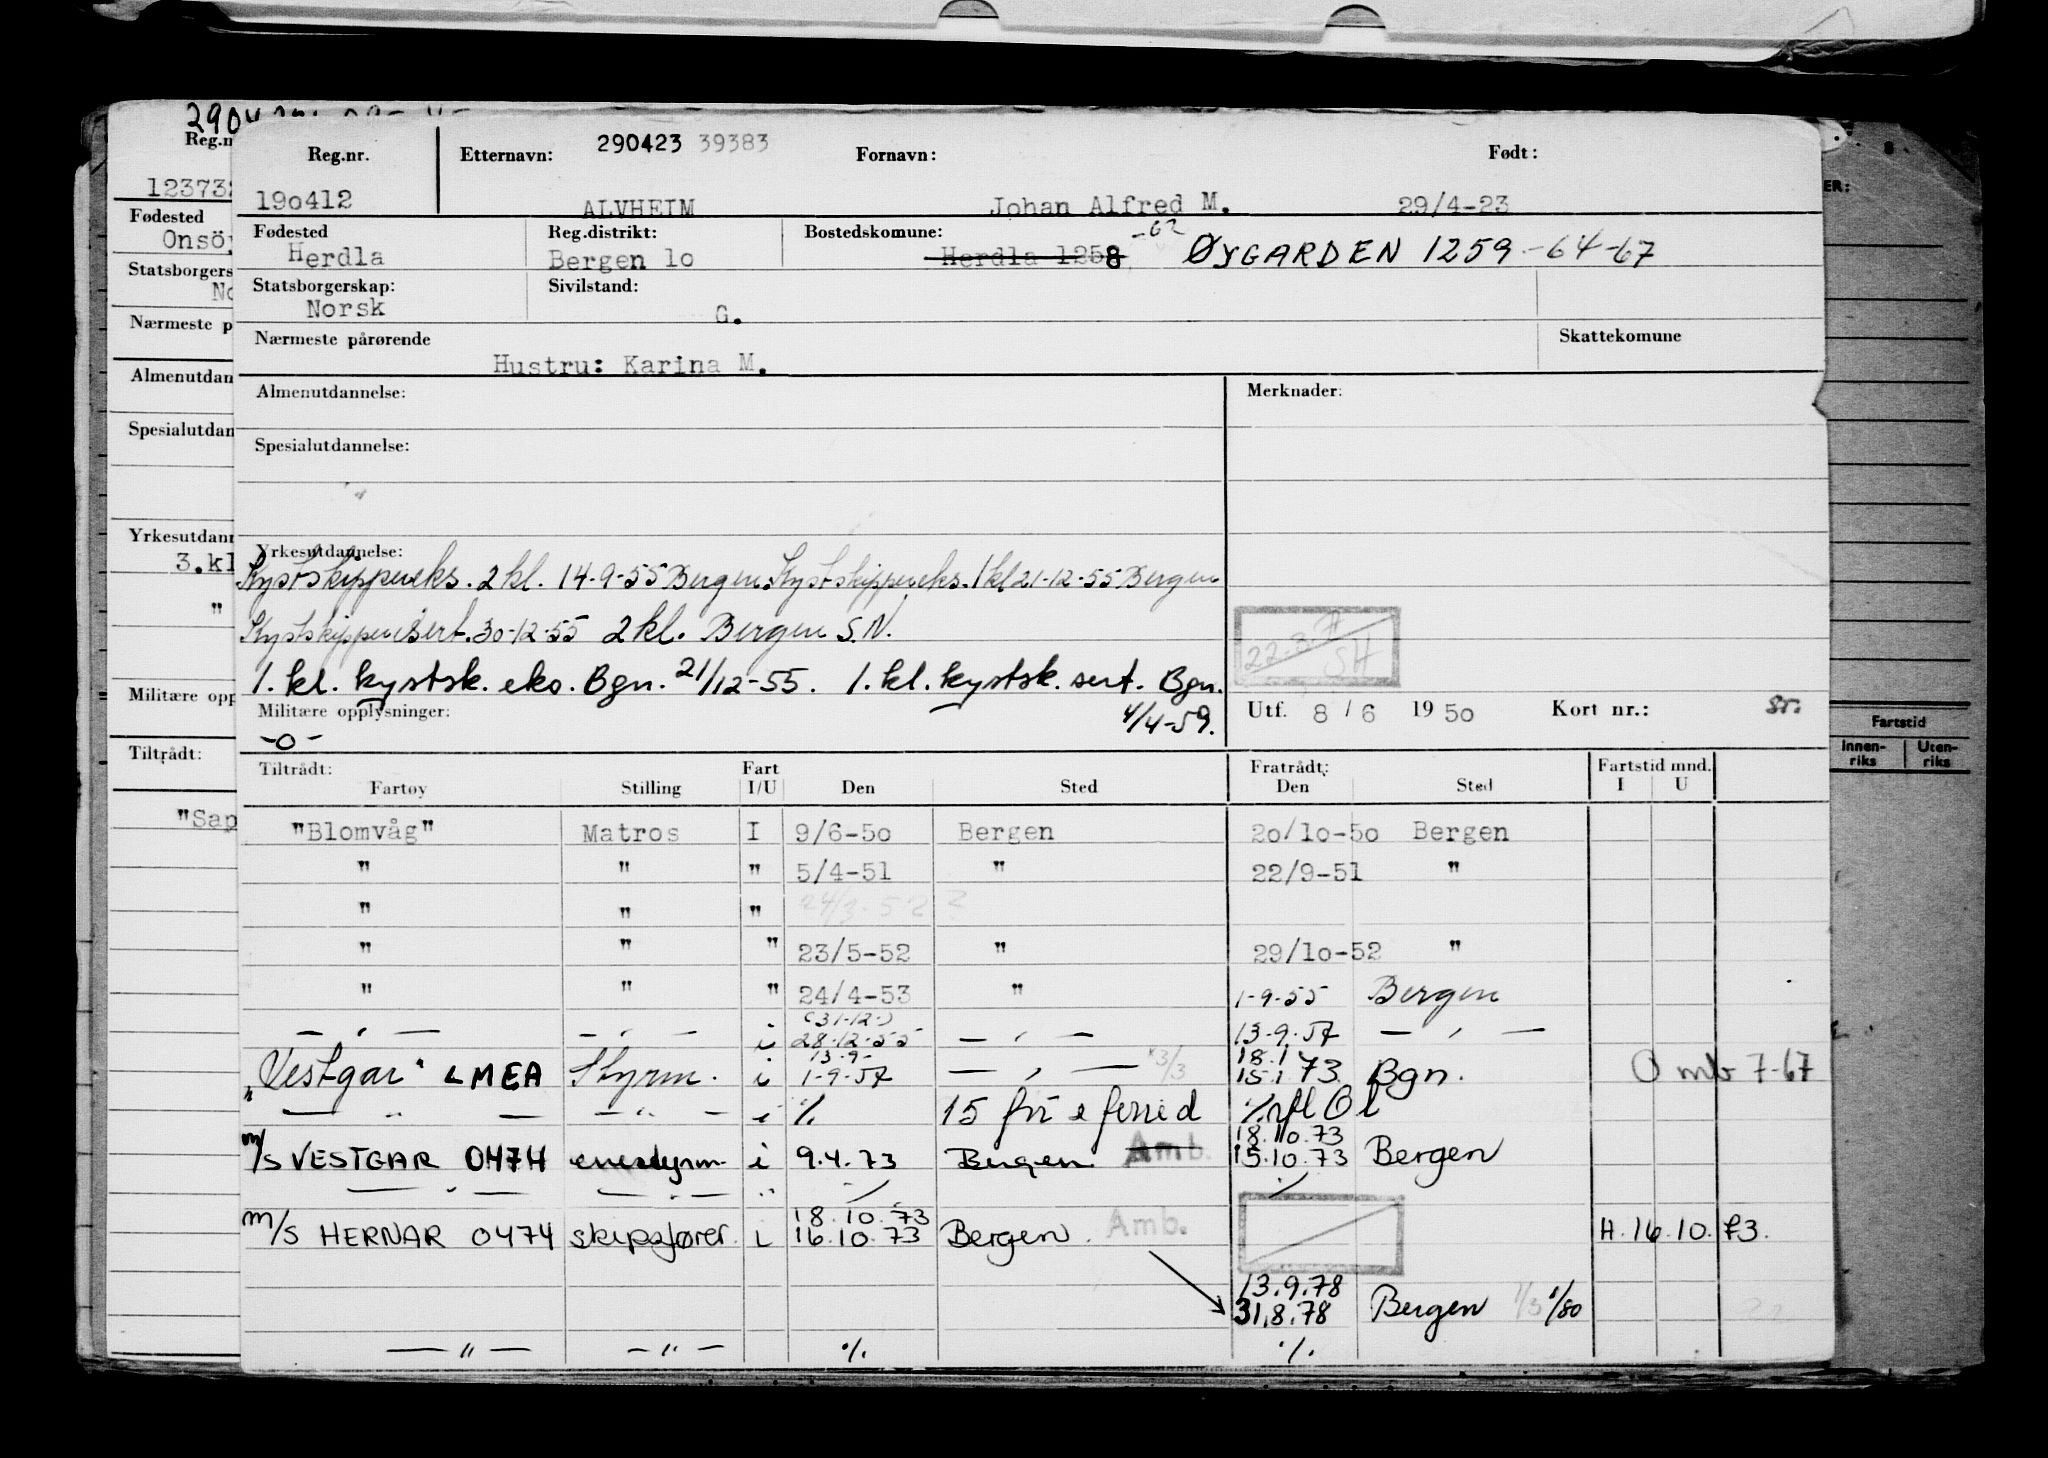 2904
Reg.n
123732
Fødested
Onsöy
Statsborgers
No
Nærmeste p
Almenutdan
Spesialutdan
Yrkesutdann
3.kl
"
Militære opp
Tiltrådt:
"Sap
Reg.nr. Etternavn: 290423 39383 Fornavn: Født:
190412 ALVHEIM Johan Alfred M. 29/4-23
Fødested Reg.distrikt: Bostedskomune: -62
Herdla Bergen lo Herdla 1258 ØYGARDEN 1259 -64-67
Statsborgerskap: Sivilstand:
Norsk G.
Nærmeste pårørende Skattekomune
Hustru: Karina M.
Almenutdannelse: Merknader:
Spesialutdannelse:
Yrkesutdannelse:
Kystskippereks. 2 kl. 14-9-55 Bergen Kystskippereks. 1 kl 21-12-55 Bergen
Kystskippersert. 30-12-55 2 kl. Bergen S.N.
1. kl. kystsk. eks. Bgn. 21/12-55. 1. kl. kystsk. sert. Bgn.
4/4-59.
Militære opplysninger:
-o-
SH
Utf. 8 / 6 19 50 Kort nr.:
Tiltrådt: Fart Fratrådt: Fartstid mnd.
Fartøy Stilling I/U Den Sted Den Sted I U
"Blomvåg" Matros I 9/6-5o Bergen 2o/lo-5o Bergen
" " " 5/4-51 " 22/9-51 "
" " " 24/3-52 ?
" " " 23/5-52 " 29/lo-52 "
" " " 24/4-53 " 1-9-55 Bergen
(31-12-)
— " — — " — i 28-12-55 — " — 13-9-57 — " —
13-9- 18.1
"Vestgar" LMEA Styrm. i 1-9-57 — " — 3/3 15.1 73 Bgn. O mb 7-67
— " — — " — i ./. 15 för e ferie d
18.10.73
m/s VESTGAR 0474 enestyrm. i 9.4.73 Bergen Amb. 15.10.73 Bergen
— " — — " — " ./. ./.
18.10.73
m/s HERNAR 0474 skipsfører i 16.10.73 Bergen Amb. H.16.10.73.
13.9.78
31.8.78 Bergen 1/3 1/80
— " — — " — ./. ./.
ER:
Fartstid
Innen-riks Uten-riks